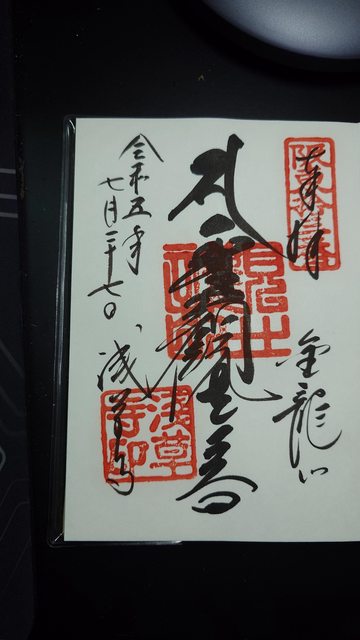 奉拝
坂東拾三番
金龍山
聖観世音
令和五年
七月二十七日
浅草寺
浅草寺印